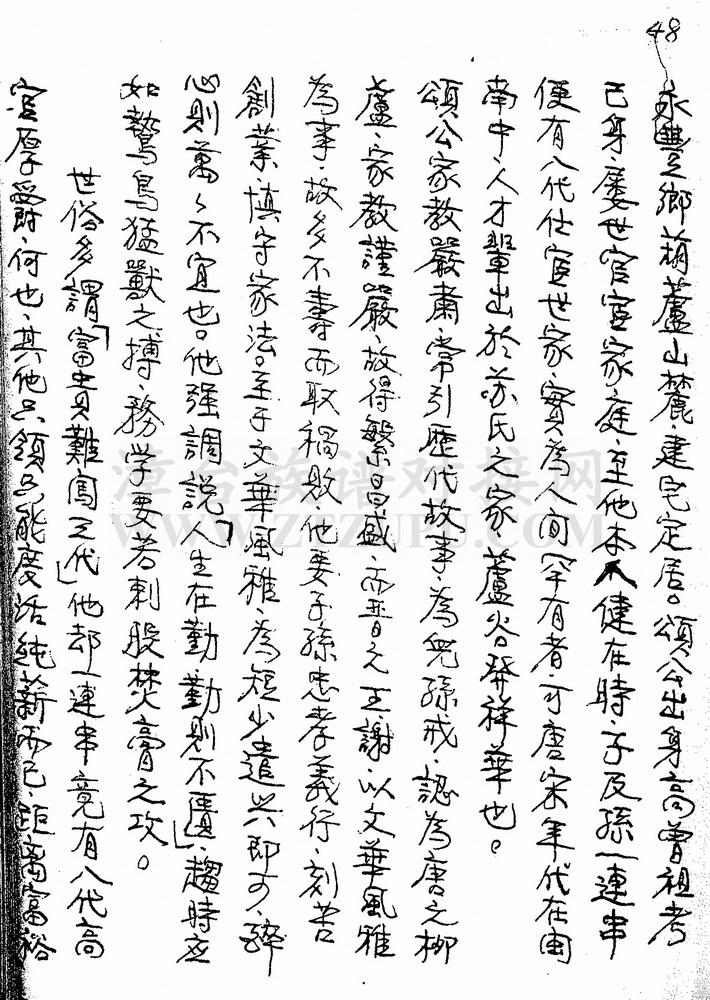 48
永豐鄉葫蘆山麓、建宅定居。頌公出身高曾祖考
己身、屢世官宦家庭、至他本人健在時、子及孫一連串
便有八代仕宦世家、實為人间罕有者、可唐宋年代在闽
南中、人才輩出於苏氏之家、蘆谷發祥華也。
頌公家教嚴肅、常引歷代故事、為兒孫戒、認為唐之柳
蘆、家教謹嚴、故得繁昌盛、而晋之王謝、以文華風雅
為事、故多不壽而取禍敗、他要子孫忠孝義行、刻苦
創業、慎守家法。至于文華風雅、為短少遣兴即可、醉
心則萬々不宜也。他強調說「人生在勤、勤則不匱」、趨時应
如鷙鳥猛獸之搏、務学要若刺股焚膏之攻。
世俗多謂「富貴難闯三代」他却一連串竟有八代高
官厚爵、何也、其他只領只能度活純薪而已、距离富裕
漳台族谱对接网
WWW.ZTZUPU.COM